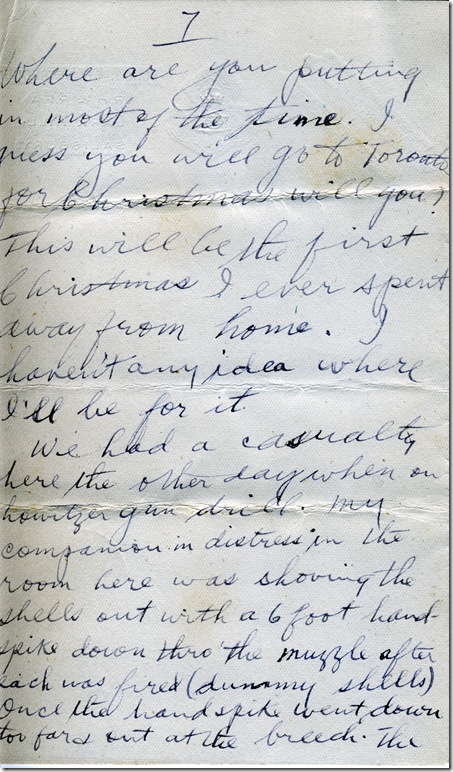 7
Where are you putting
in most of the time. I
guess you will go to Toronto
for Christmas will you?
This will be the first
Christmas I ever spent
away from home. I
haven't any idea where
I'll be for it
We had a casualty
here the other day when on
howitzer gun drill. My
companion in distress in the
room here was shoving the
shells out with a 6 foot hand-
spike down thro' the muzzle after
each was fired (dummy shells)
Once the handspike went down
too far & out at the breech. The